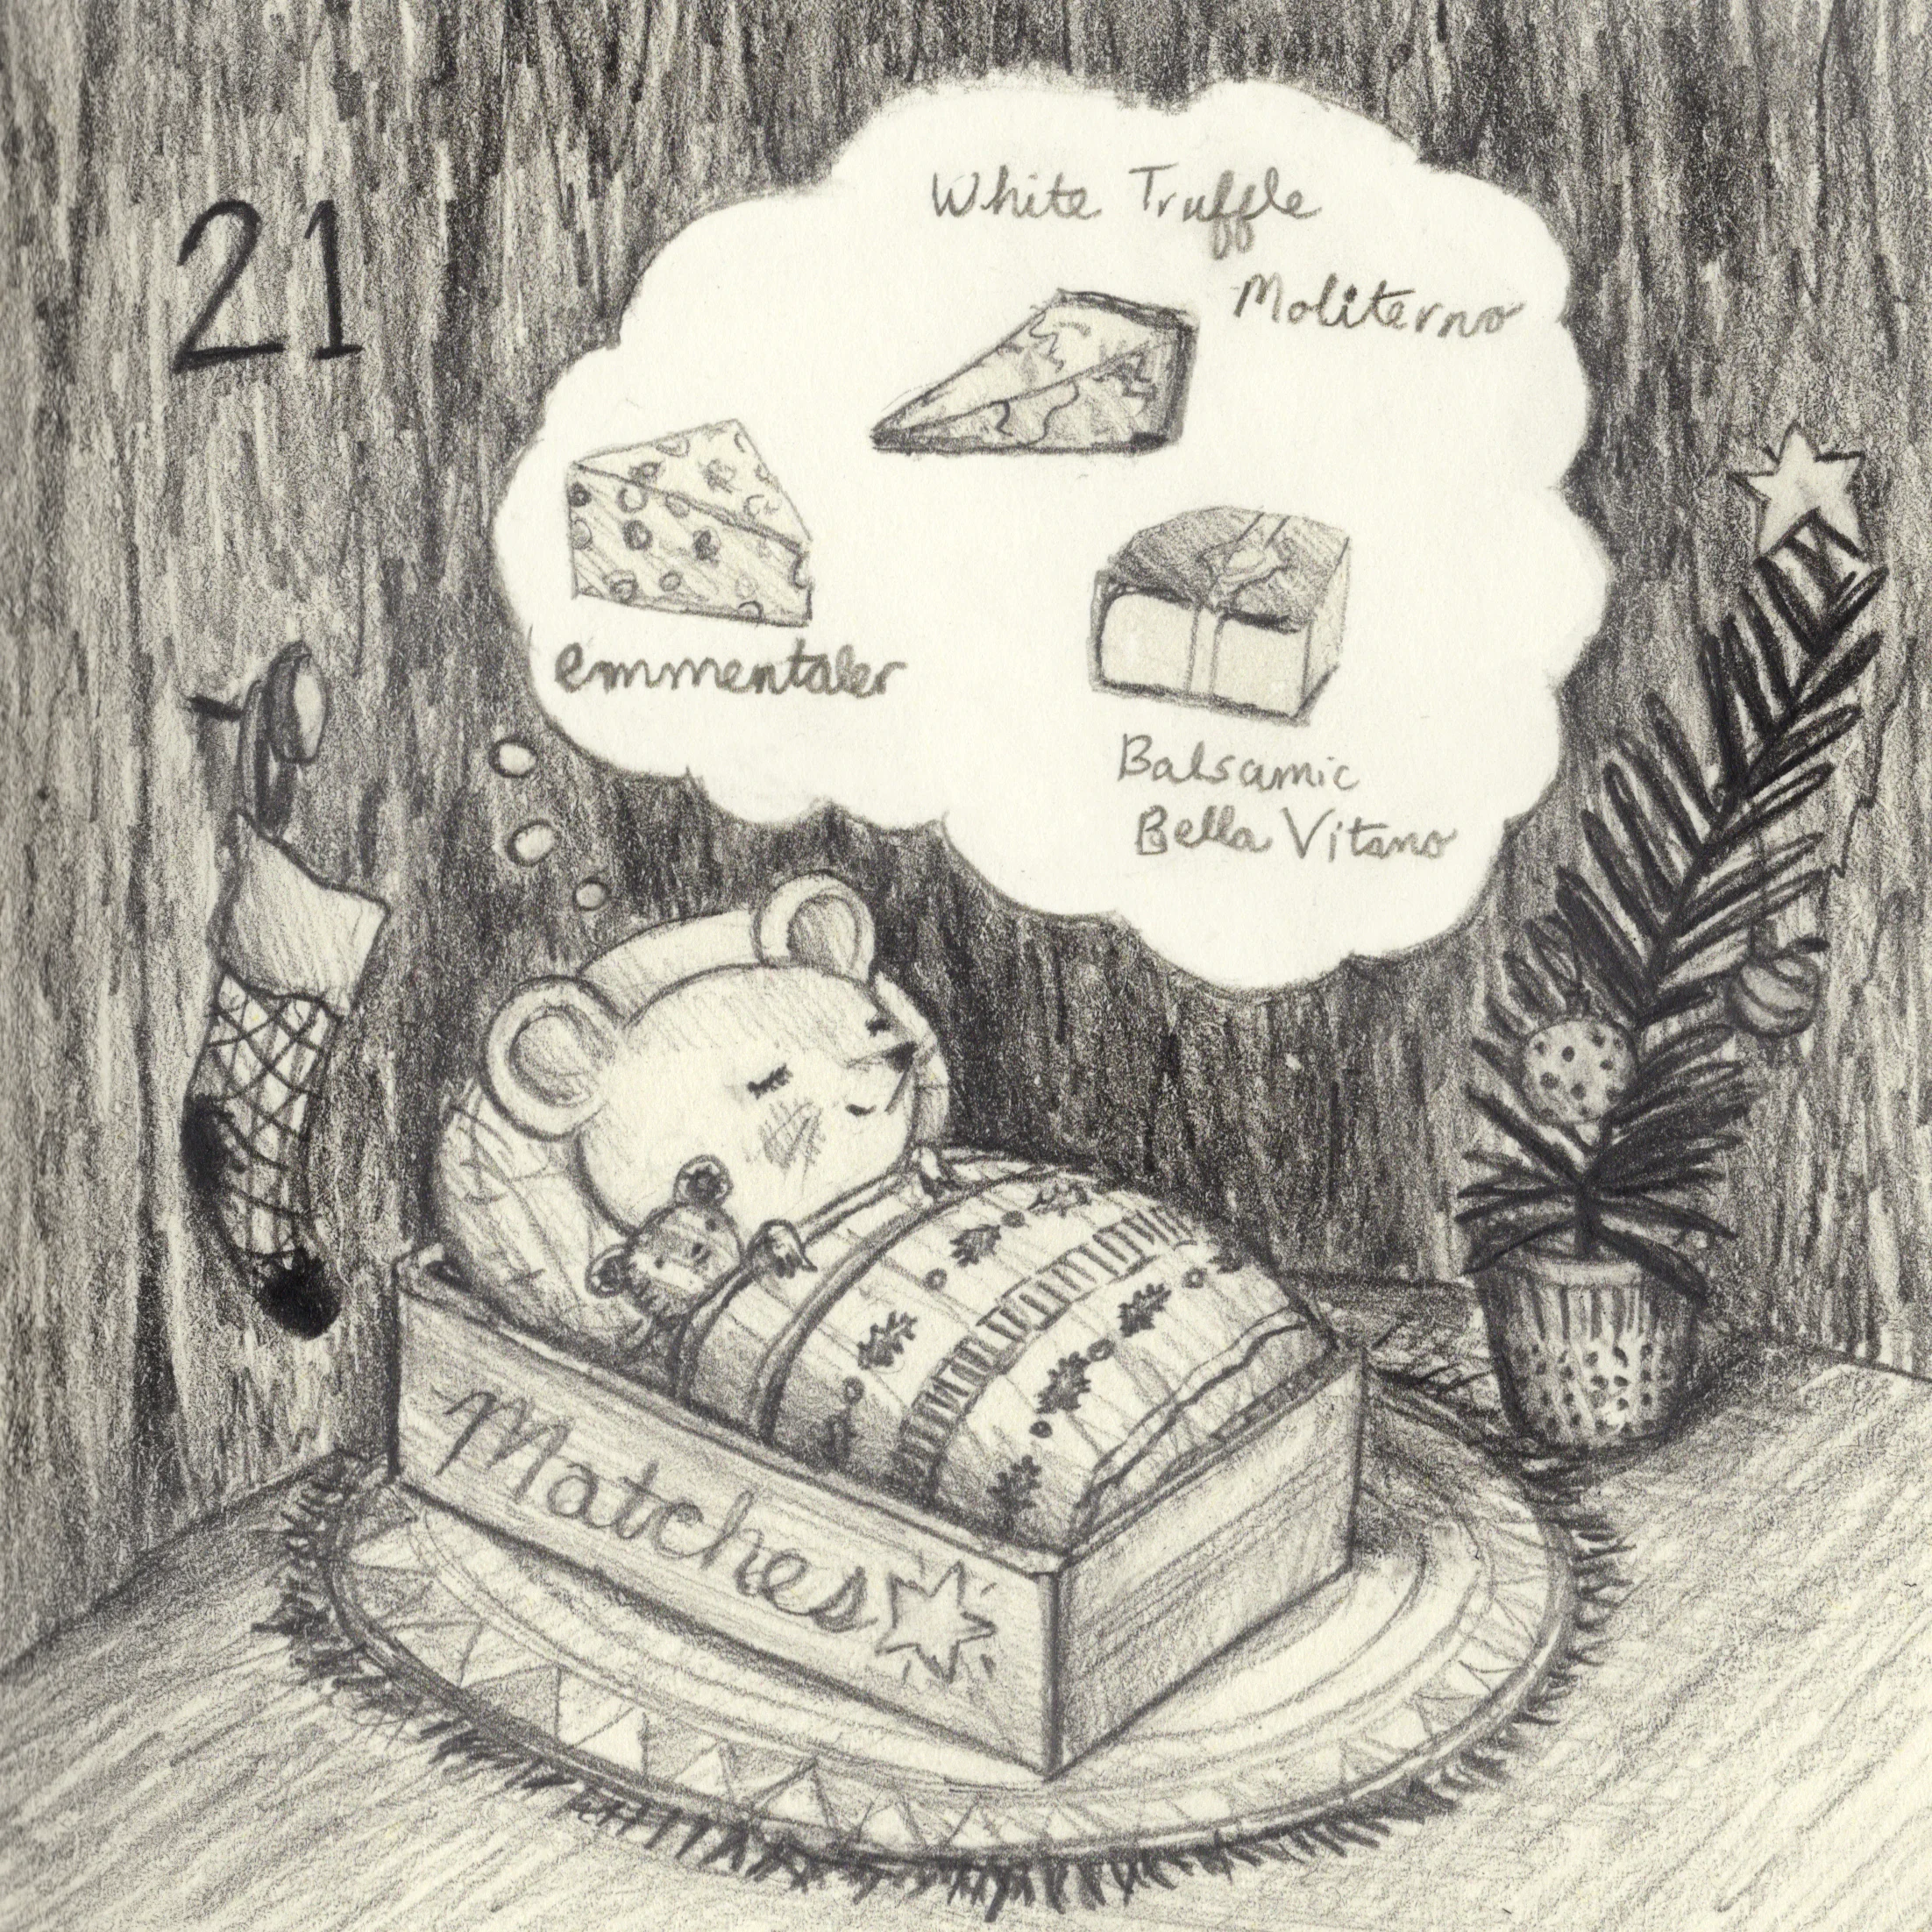 21
White Truffle
Moliterno
emmentaler
Balsamic
Bella Vitano
Matches